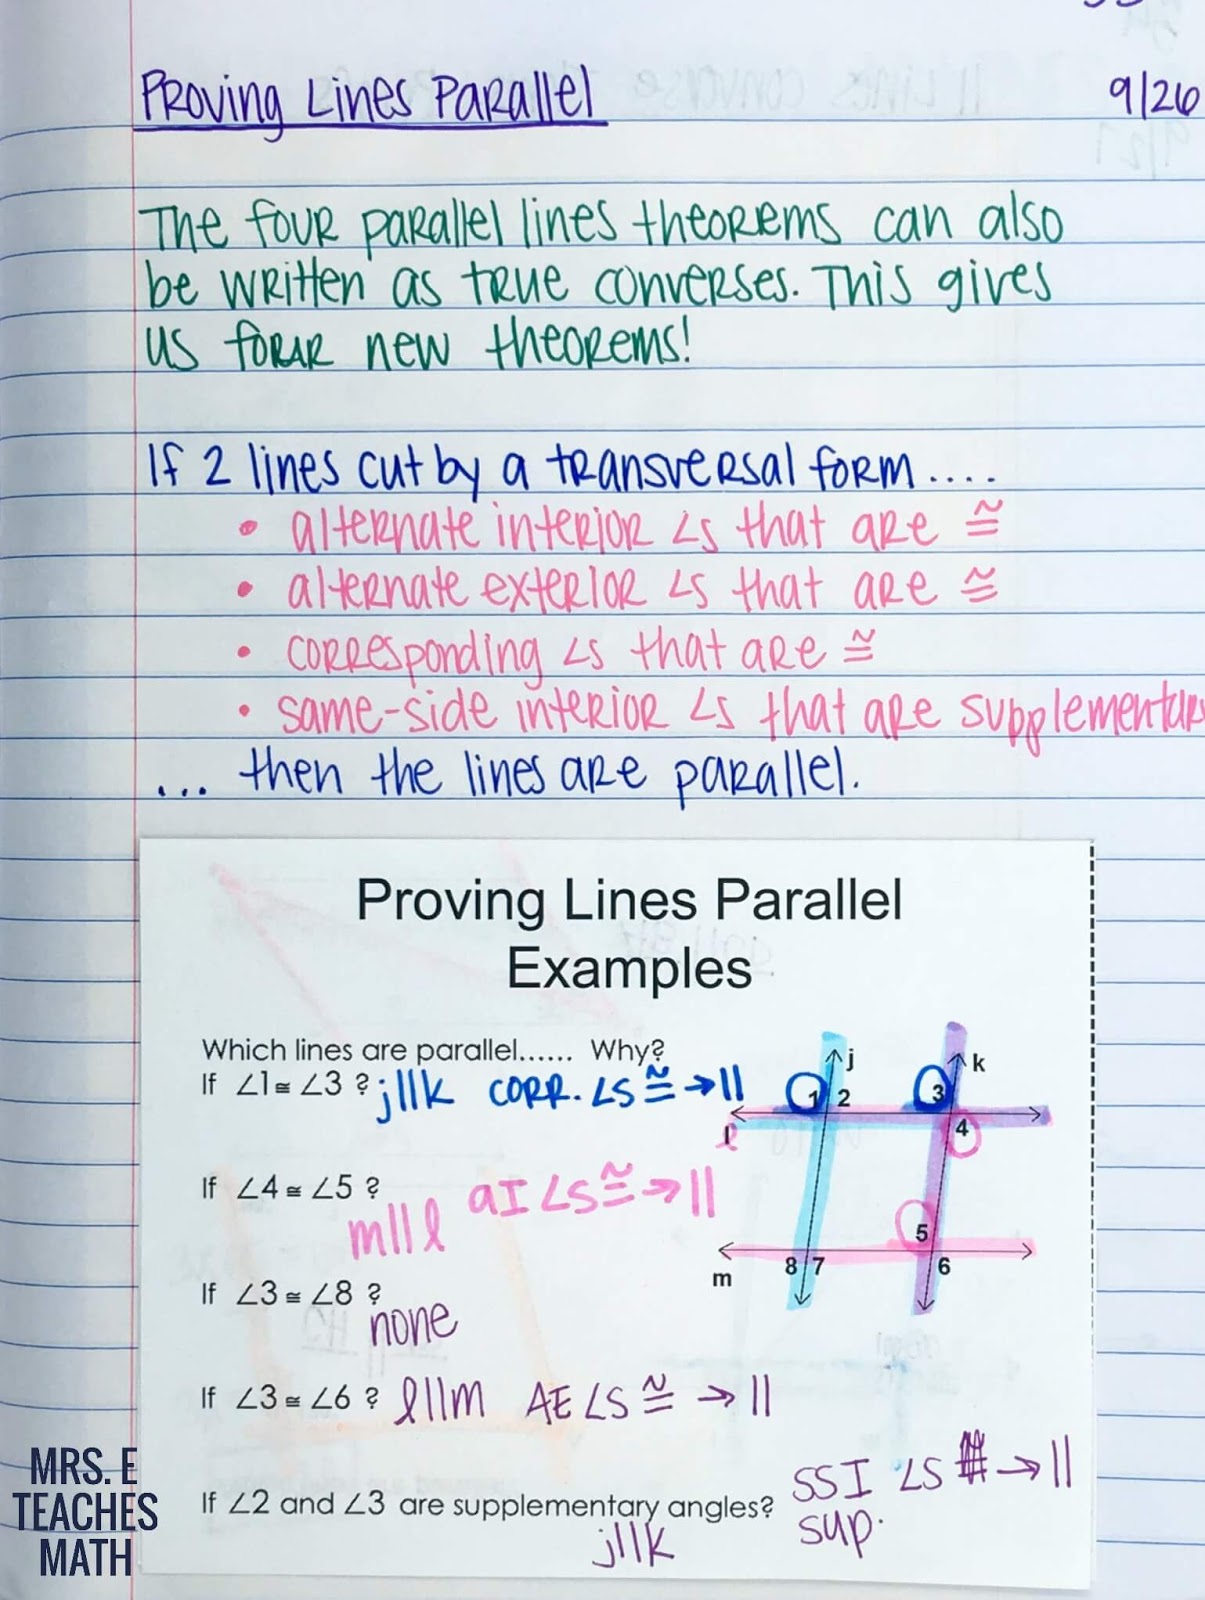 Proving Lines Parallel 9/26
The four parallel lines theorems can also
be written as true converses. This gives
us four new theorems!
If 2 lines cut by a transversal form....
• alternate interior ∠s that are ≅
• alternate exterior ∠s that are ≅
• corresponding ∠s that are ≅
• same-side interior ∠s that are supplementary
... then the lines are parallel.
Proving Lines Parallel
Examples
Which lines are parallel...... Why?
If ∠1 ≅ ∠3 ? j||k corr. ∠s ≅ → ||
If ∠4 ≅ ∠5 ?
m||l aI ∠s ≅ → ||
If ∠3 ≅ ∠8 ?
none
If ∠3 ≅ ∠6 ? l||m AE ∠s ≅ → ||
If ∠2 and ∠3 are supplementary angles?
SSI ∠s → ||
sup.
j||k
j
k
1 2
3
4
l
l
5
8 7
6
m
MRS. E
TEACHES
MATH